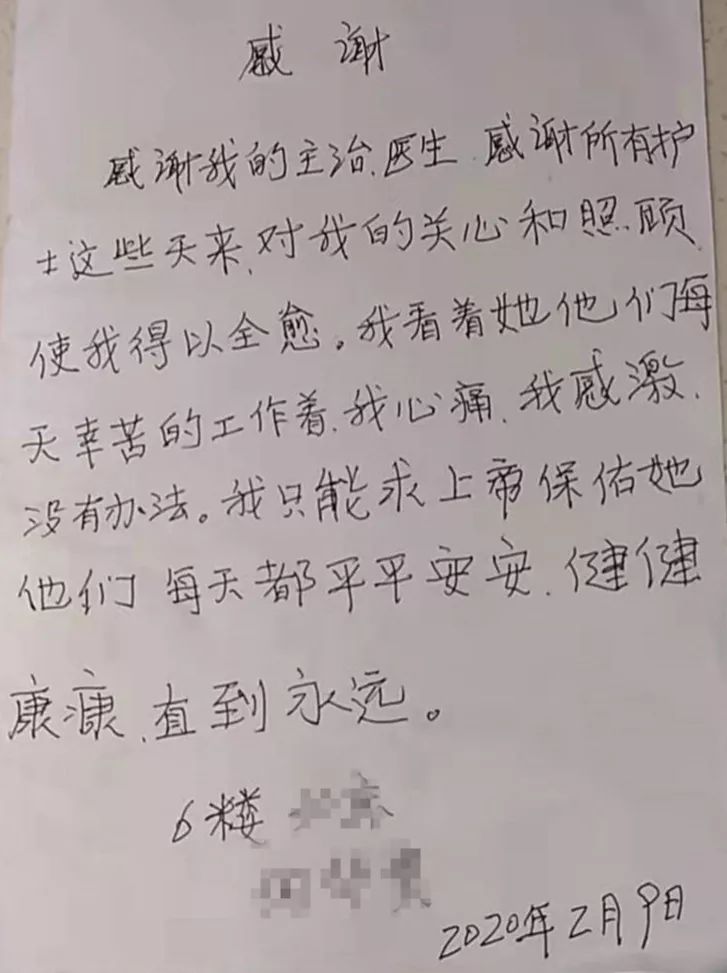 感谢
感谢我的主治、医生 感谢所有护
士这些天来、对我的关心和照顾、
使我得以全愈。我看着她他们每
天幸苦的工作着、我心痛、我感激、
没有办法。我只能求上帝保佑她
他们 每天都平平安安、健健
康康、直到永远。
6楼
2020年2月9日